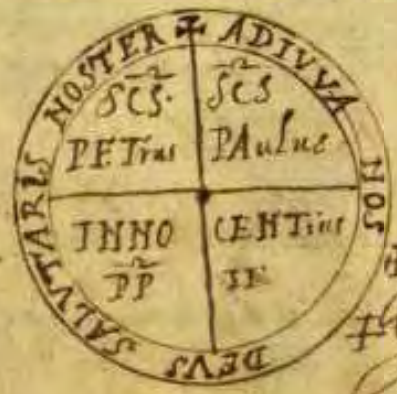 ✠ ADIVVA NOS DEVS SALVTARIS NOSTER
SCS·
PETrus
SCS
PAulus
INNO
PP
CENTius
II